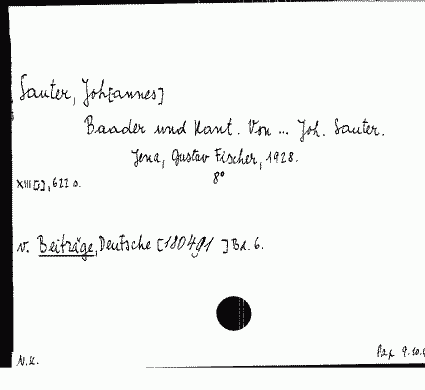 Sauter, Joh[annes]
Baader und Kant. Von ... Joh. Sauter.
Jena, Gustav Fischer, 1928.
8°
XIII[I], 622 s.
v. Beiträge, Deutsche [180491 ] Bd. 6.
N.K.